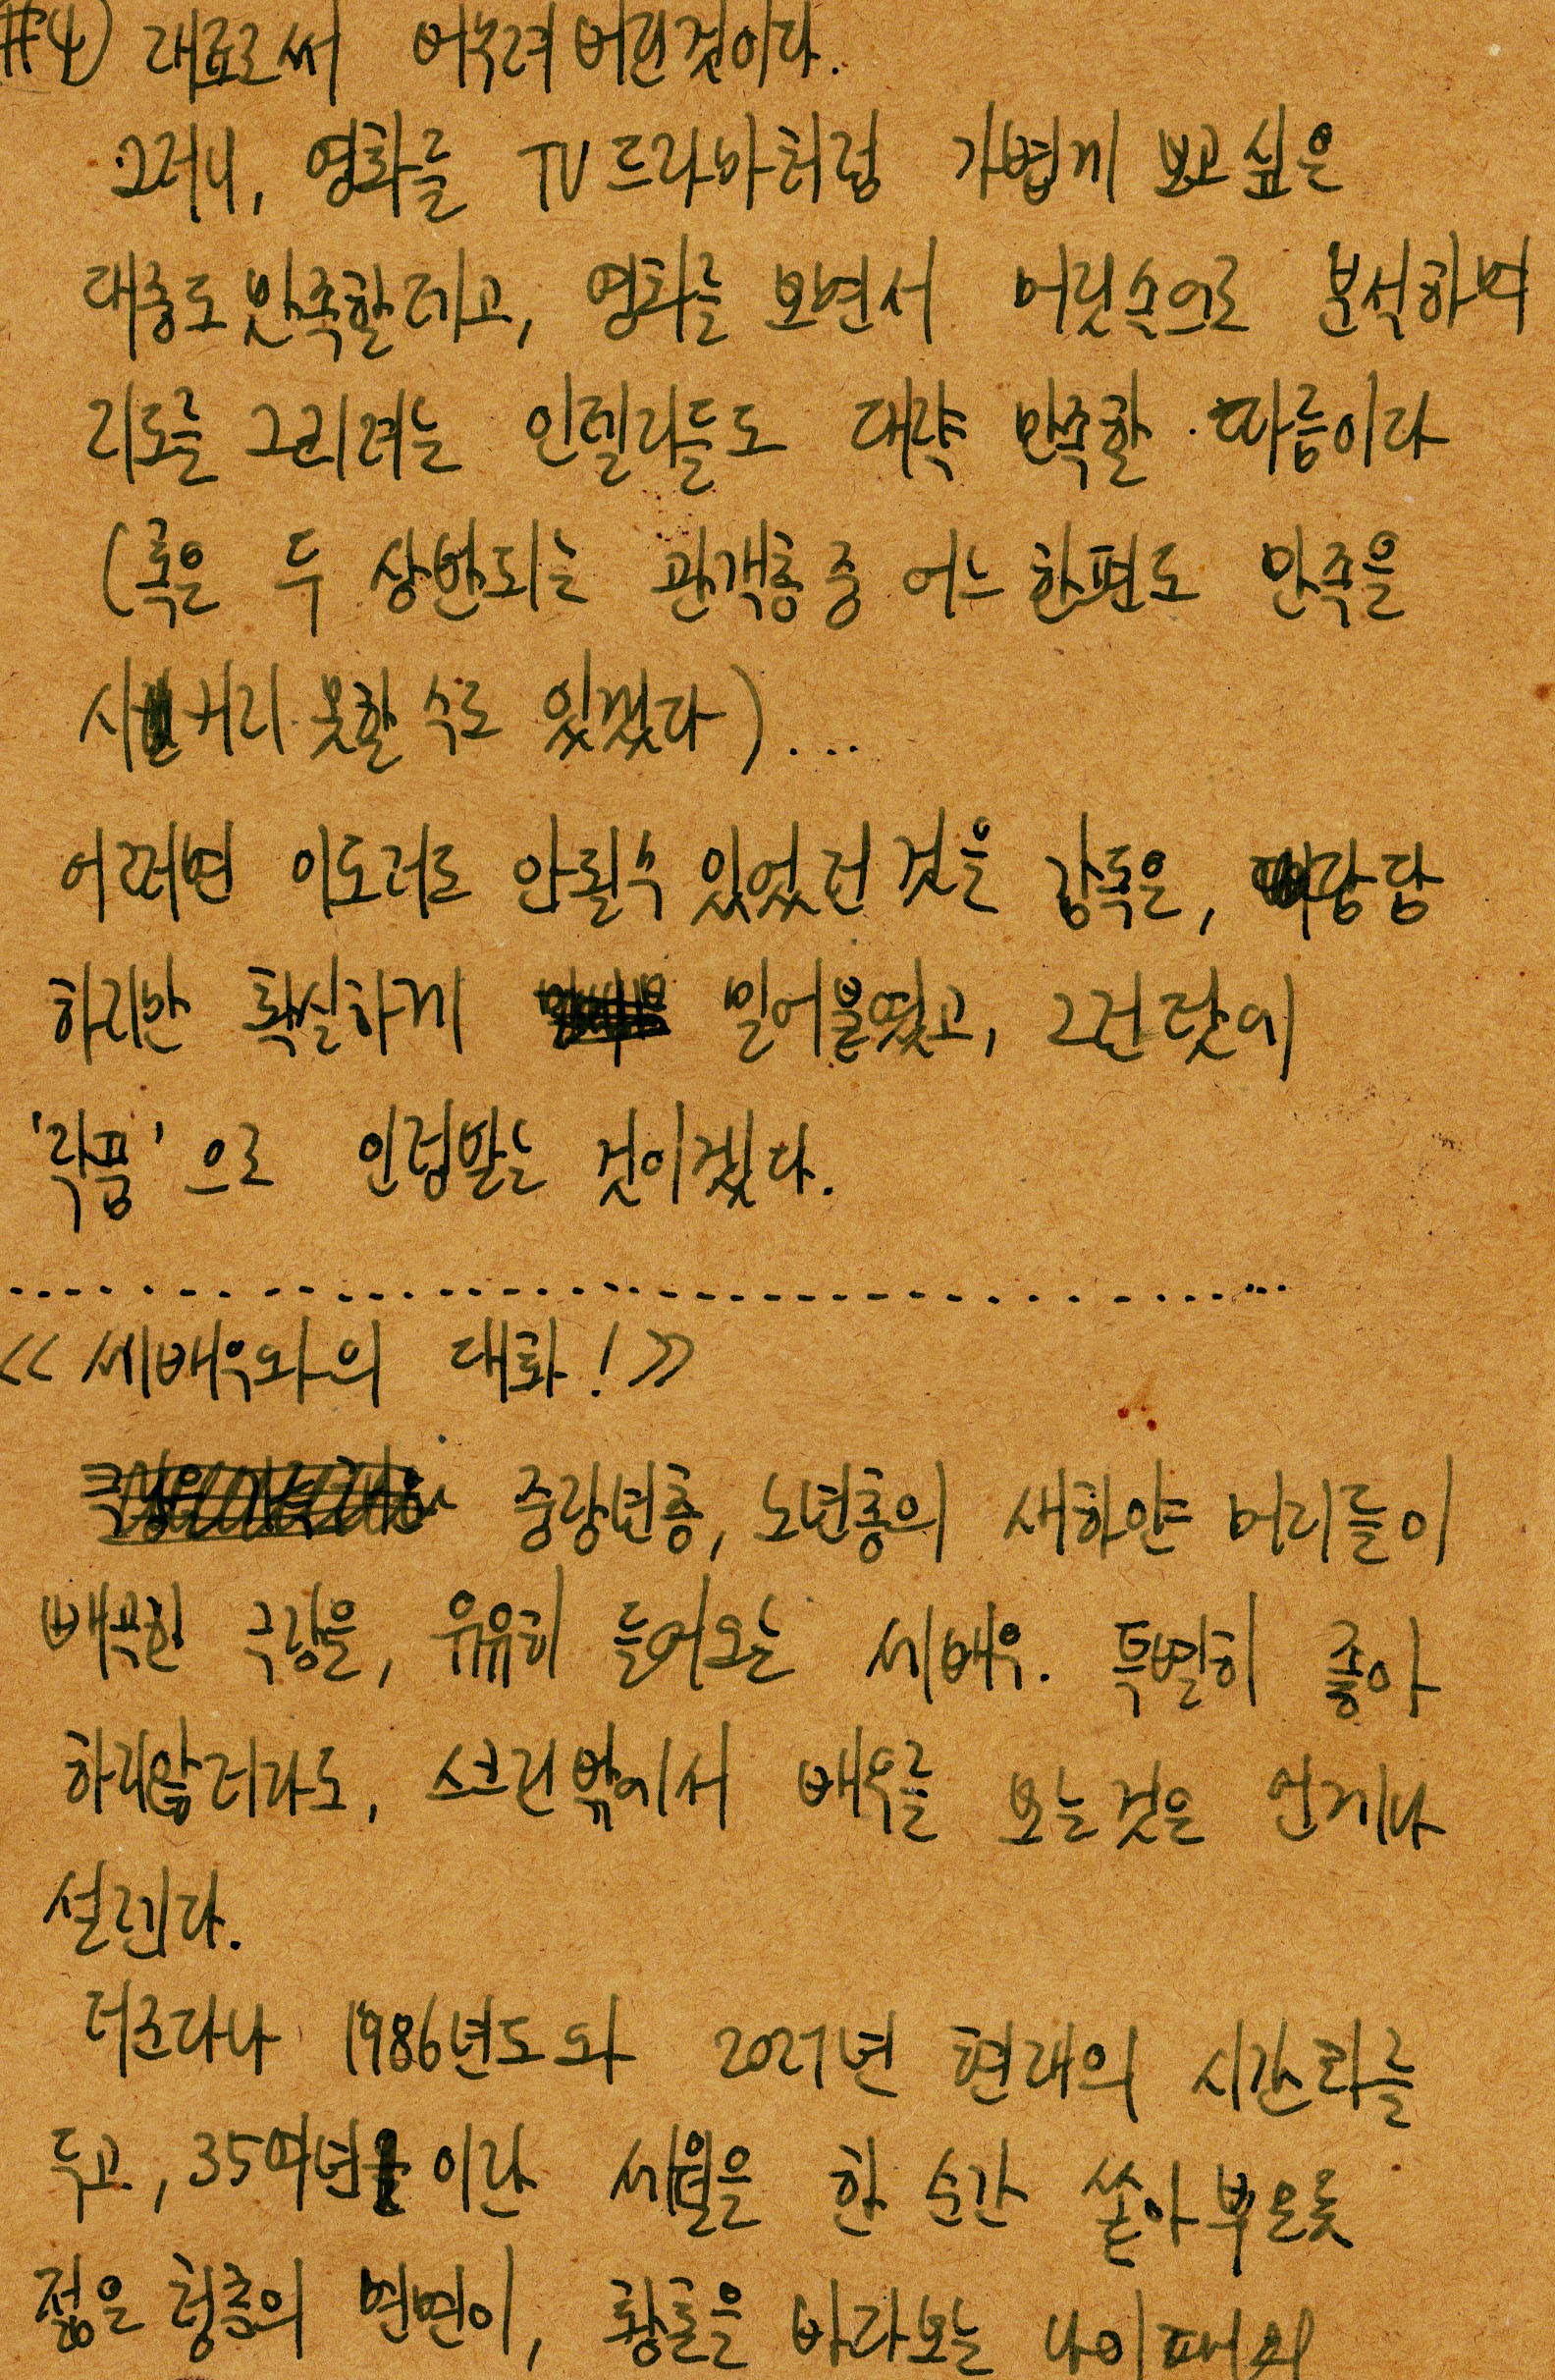 #4) 재료로써 버무려 버린것이다.
그러니, 영화를 TV드라마처럼 가볍게 보고 싶은
대중도 만족할테고, 영화를 보면서 머릿속으로 분석하며
지도를 그리려는 인텔리들도 대략 만족할 따름이다
(혹은 두 상반되는 관객층 중 어느 한편도 만족을
시키지 못할 수도 있겠다)....
어쩌면 이도저도 안될수 있었던 것을 감독은, 담담
하지만 확실하게 밀어붙였고, 그런 탓에
'작품'으로 인정받는 것이겠다.
<< 세배우와의 대화! >>
중장년층, 노년층의 새하얀 머리들이
빼곡한 극장을, 유유히 들어오는 세배우. 특별히 좋아
하지않더라도, 스크린 밖에서 배우를 보는것은 언제나
설렌다.
더군다나 1986년도와 2021년 현재의 시간차를
두고, 35여년이란 세월을 한 순간 쏟아부은듯
젊은 청춘의 면면이, 황혼을 바라보는 나이때의